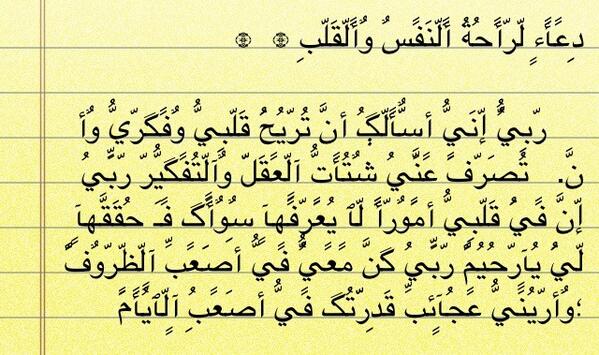 دِعًأَءٍ لّرّأَحُةُ أَلّنَفَسُ وٌأَلّقَلّبِ ۞ ۞
رّبيُّ إنَيُّ أسٌّأَلّگ أنَّ تُرّيّحُ قَلّبيُّ وٌفَگرّيُّ وٌأ
نَّ. تُصَرّفَ عًنَّيُّ شُتُأَتُّ آلّعًقَلّ وٌآلّتُفَگيُّرّ رّبيُّ
إنَّ فَيُّ قَلّبيُّ أمًوٌرّأً لّآ يُعًرّفَّهاَ سِوٌأَگ فَـ حُقَقَّهاَ
لّيُّ يُأَرّحُيُمً رّبيُّ گنَّ مًعًيُّ فَيُّ أصَعًبِّ آلّظّرّوٌفَ
؛وٌأرّيُنَيُّ عًجَأَئبِّ قَدِرّتُگ فَيُّ أصَعًبِ آلّآيُأَمً